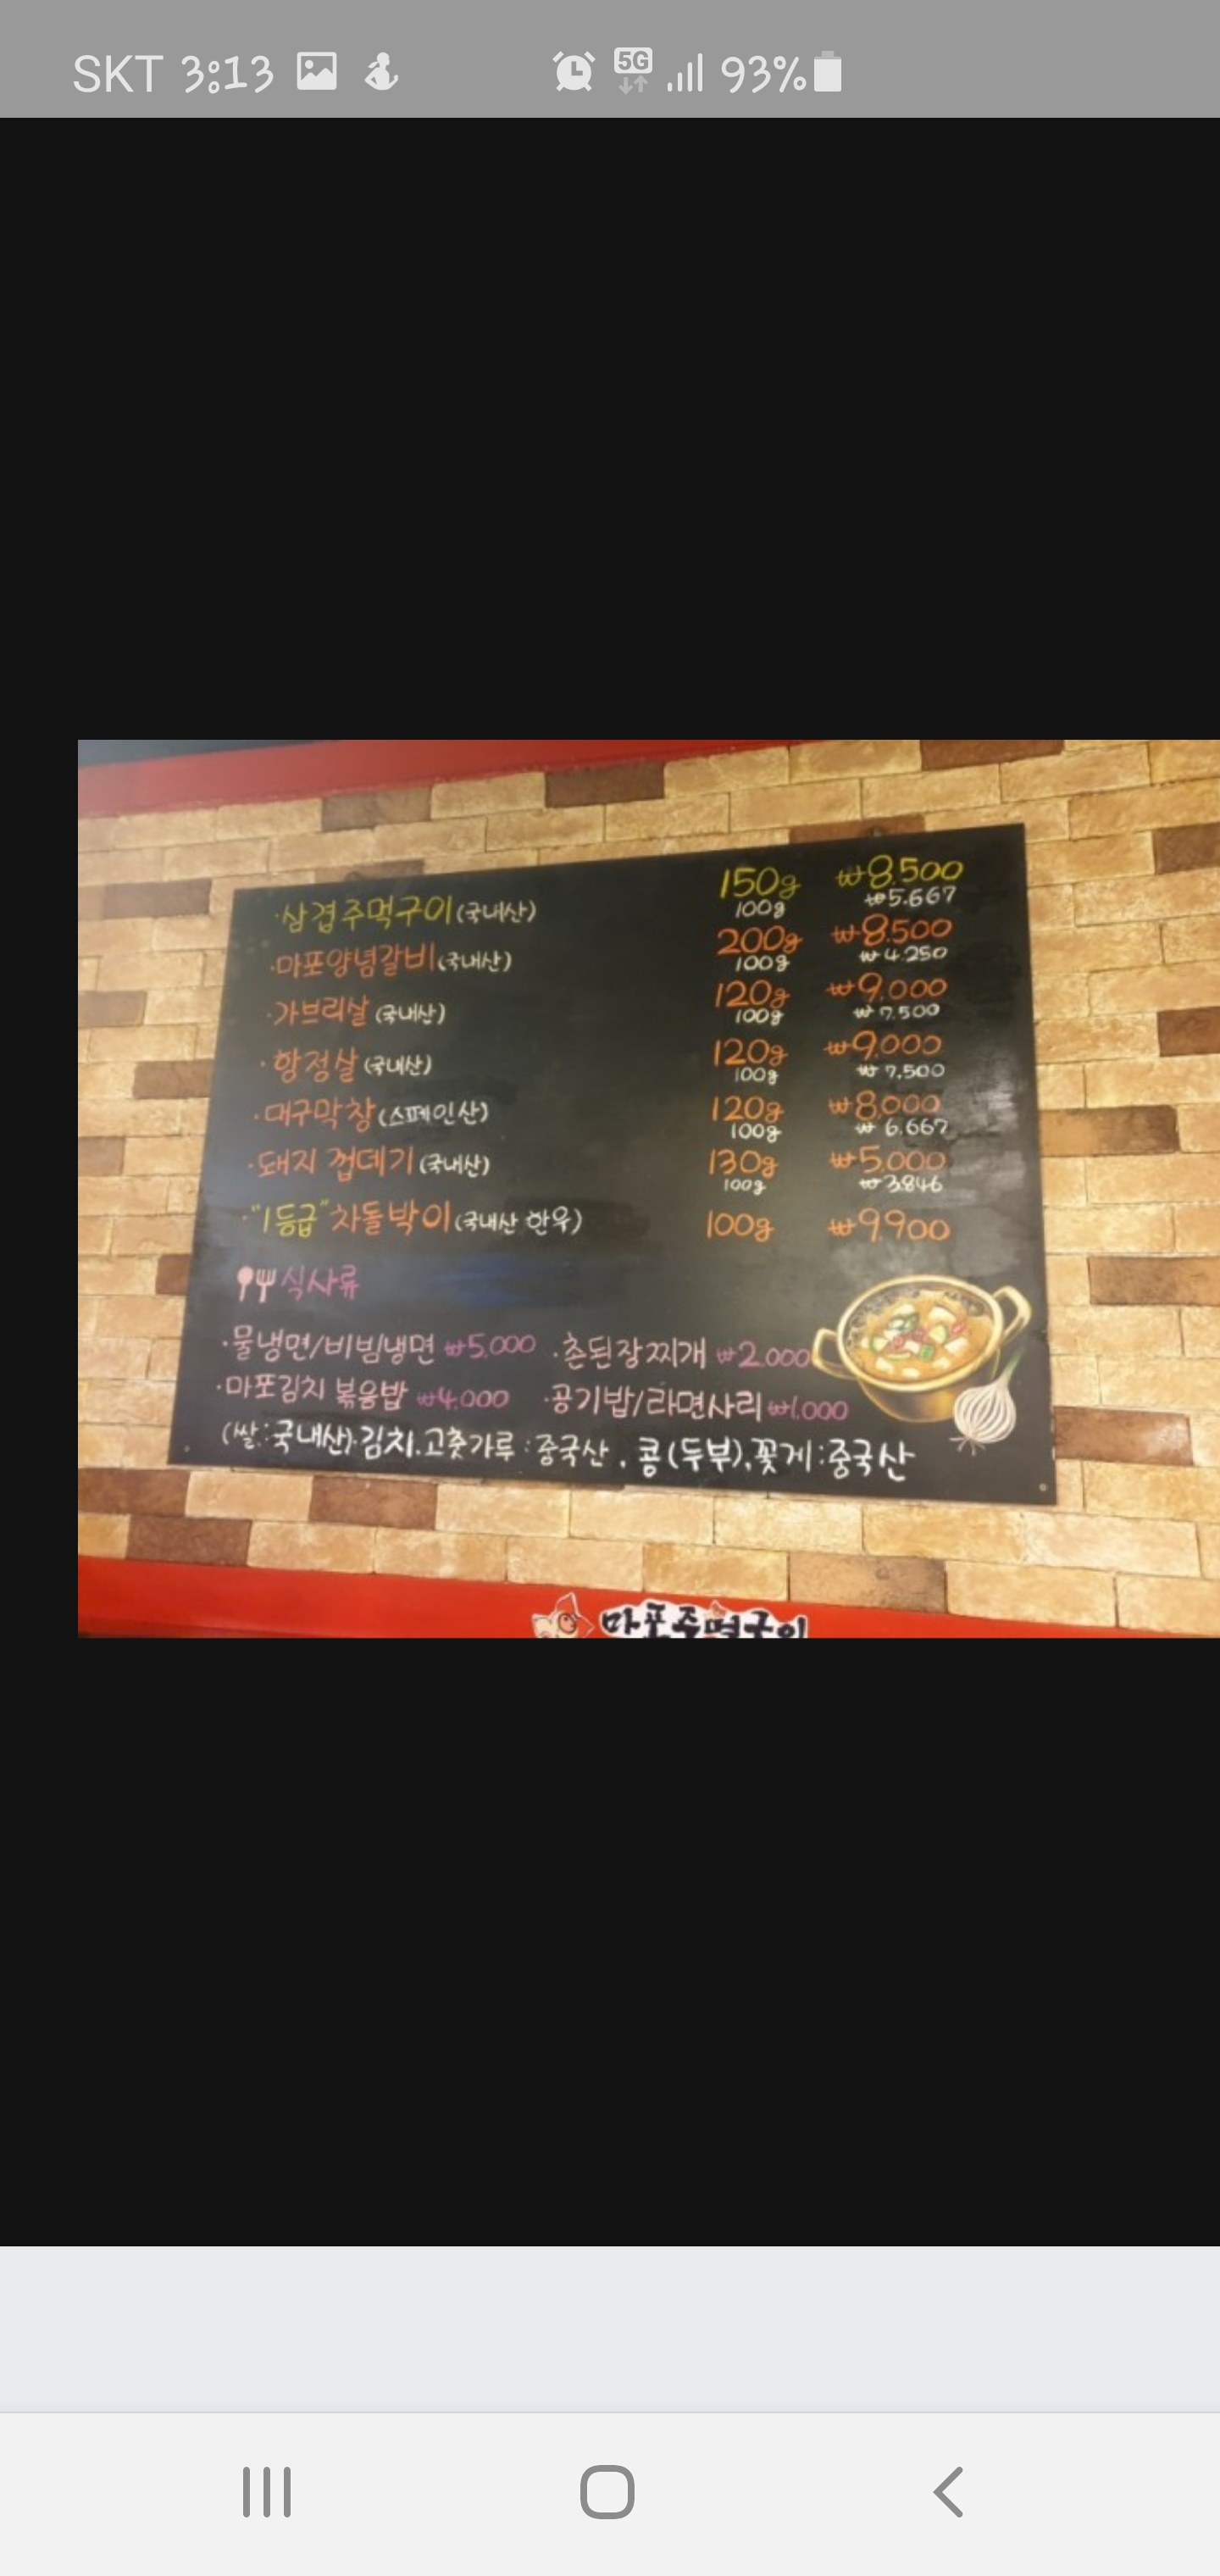 SKT 3:13 5G 93%
·삼겹주먹구이(국내산) 150g ₩8,500
100g ₩5.667
·마포양념갈비(국내산) 200g ₩8,500
100g ₩4.250
·가브리살(국내산) 120g ₩9,000
100g ₩7,500
·항정살(국내산) 120g ₩9,000
100g ₩7,500
·대구막창(스페인산) 120g ₩8,000
100g ₩6.667
·돼지 껍데기(국내산) 130g ₩5,000
100g ₩3.846
·"1등급"차돌박이(국내산 한우) 100g ₩9,900
식사류
·물냉면/비빔냉면 ₩5,000 ·촌된장찌개 ₩2,000
·마포김치 볶음밥 ₩4,000 ·공기밥/라면사리 ₩1,000
(쌀:국내산).김치.고춧가루:중국산, 콩(두부),꽃게:중국산
마포주먹구이